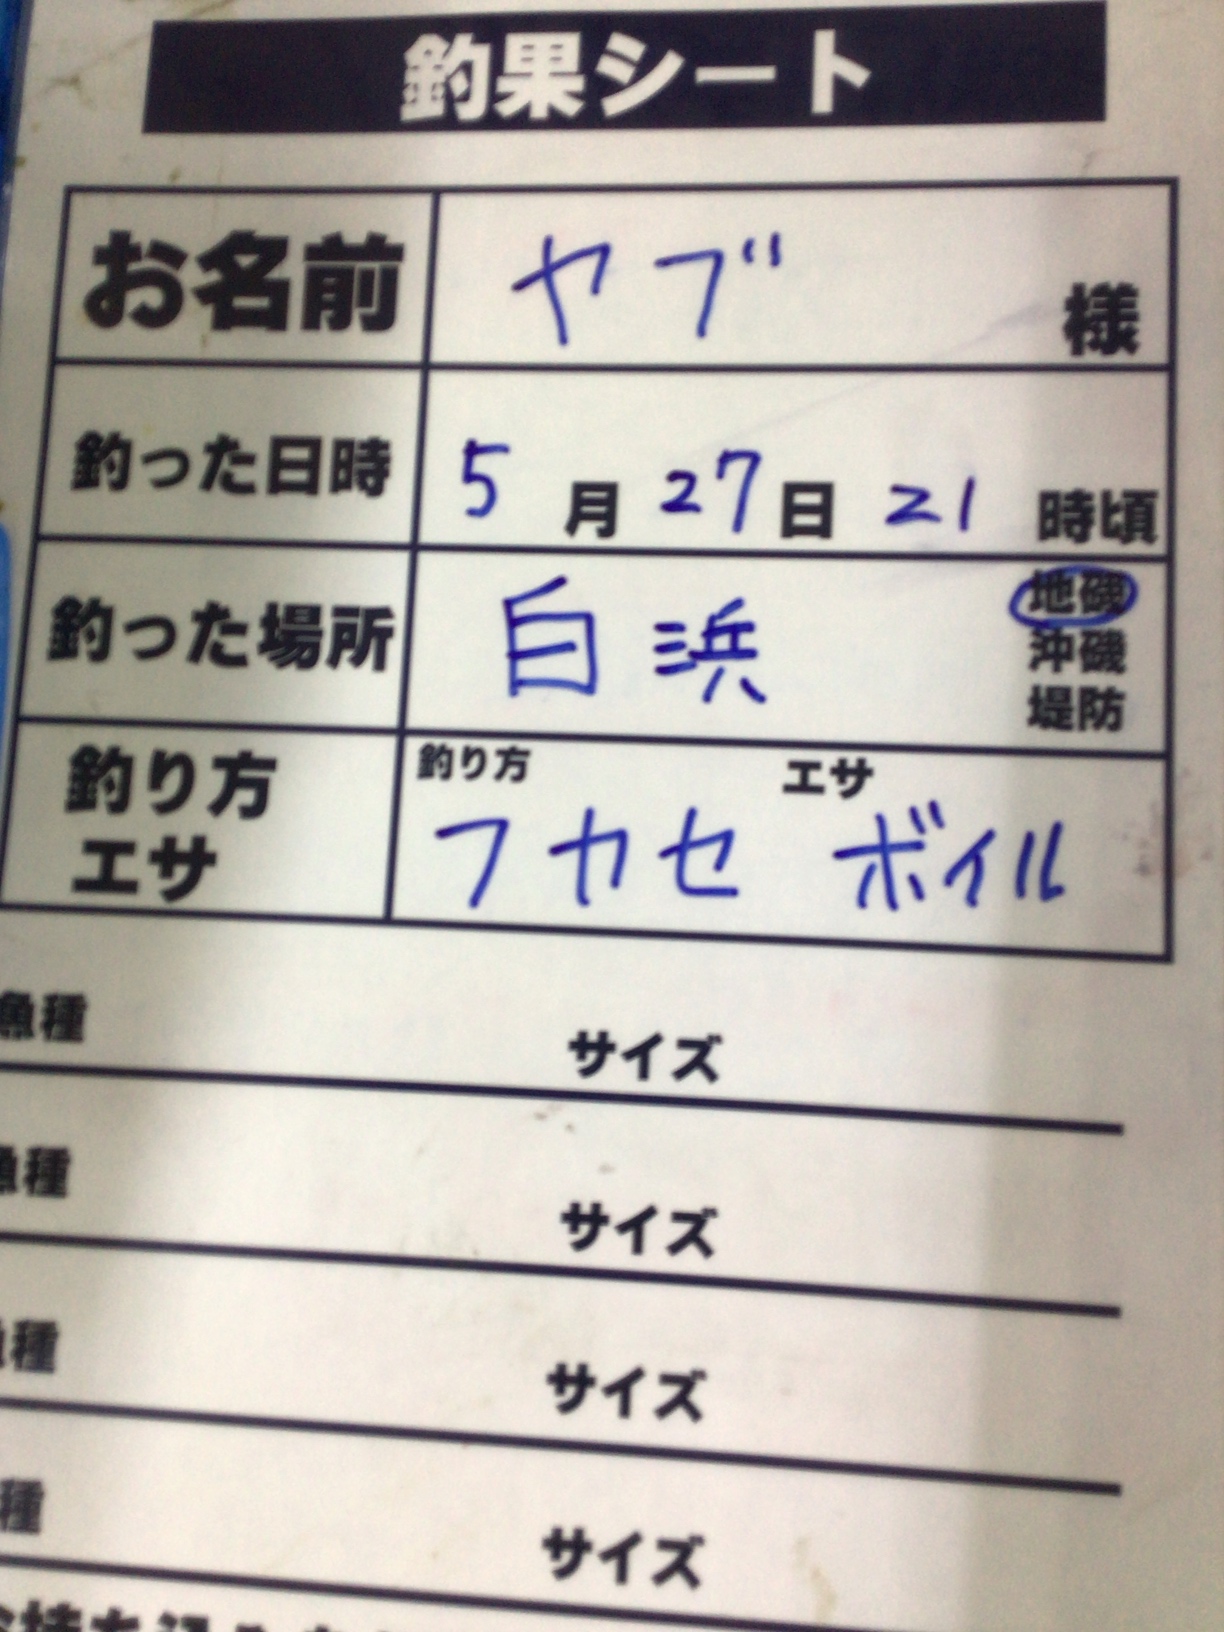 釣果シート
お名前 ヤブ 様
釣った日時 5月27日21時頃
釣った場所 白浜 地磯
沖磯
堤防
釣り方 エサ
釣り方 フカセ エサ ボイル
魚種 サイズ
魚種 サイズ
魚種 サイズ
種 サイズ